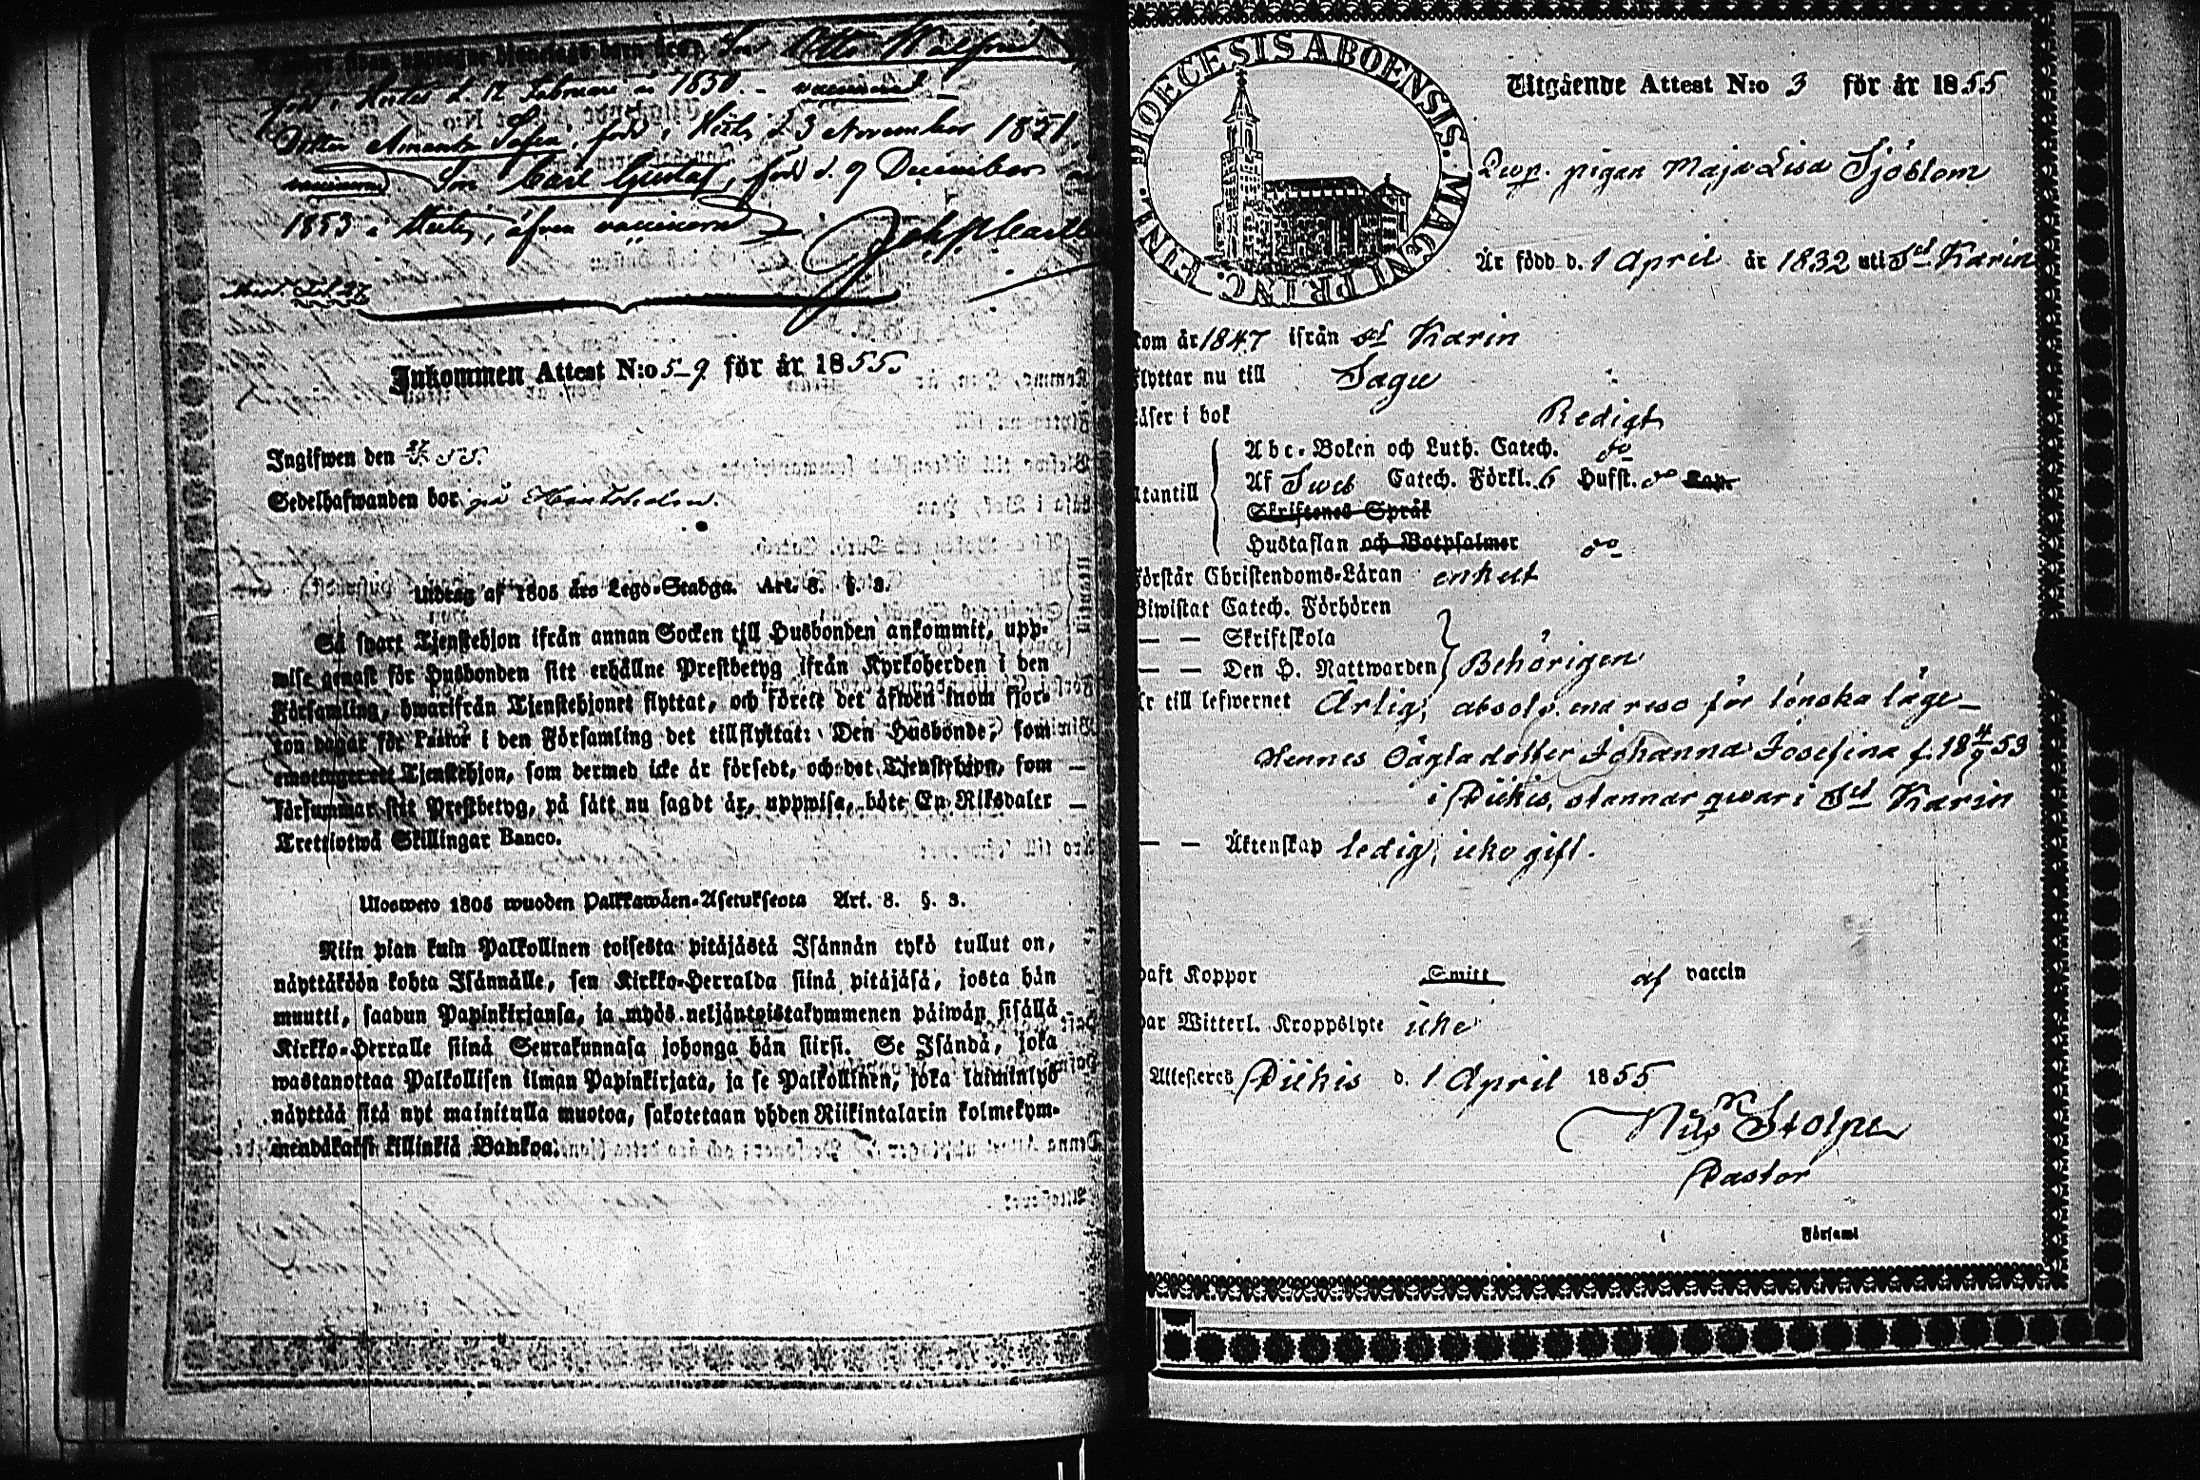 Son Otto Walfrid
född i Hirtis d. 12 Februari år 1850. – vaccinerad –
Dotter Amanda Sofia, född i Hirtis d. 3 November 1851
vaccinerad Son Carl Gustaf, född d. 9 December
1853 i Hirtis, äfven vaccinerad
Inkommen Attest N:o 5-9 för år 1855.
Ingifwen den
Sedelhafwanden bor på
Utdrag af 1805 års Lego-Stadga. Art. 8. §. 3.
Så snart Tjenstehjon ifrån annan Socken till Husbonden ankommit, upp-
wise genast för Husbonden sitt erhållne Prestbetyg ifrån Kyrkoherden i den
Församling, hwarifrån Tjenstehjonet flyttat, och förete det äfwen inom fjor-
ton dagar för Pastor i den Församling det tillflyttat: Den Husbonde, som
emottager ett Tjenstehjon, som dermed icke är försedt, och det Tjenstehjon, som
försummar sitt Prestbetyg, på sätt nu sagdt är, uppwisa, böte En Riksdaler
Trettiotwå Skillingar Banco.
Ulosweto 1805 wuoden Palkkawäen-Asetuksesta Art. 8. §. 3.
Niin pian kuin Palkollinen toisesta pitäjästä Isännän tykö tullut on,
näyttäköön kohta Isännälle, sen Kirkko-Herralda siinä pitäjäsä, josta hän
muutti, saadun Papinkirjansa, ja myös neljäntoistakymmenen päiwän sisällä
Kirkko-Herralle siinä Seurakunnasa johonga hän siirsi. Se Isändä, joka
wastanottaa Palkollisen ilman Papinkirjata, ja se Palkollinen, joka laiminlyö
näyttää sitä nyt mainitulla muotoa, sakotetaan yhden Riikintalarin kolmekym-
mendäkaksi killinkiä Bankoa.
DIOECESIS ABOENSIS. MAGNI PRINC. FINL.
Utgående Attest N:o 3 för år 1855
Qwp. pigan Maja Lisa Sjöblom
Är född d. 1 April år 1832 uti St Karin
kom år 1847 ifrån St Karin
flyttar nu till Sagu
läser i bok Redigt
Abc-Boken och Luth. Catech. do
Af Sweb Catech. Förkl. 6 Hufst. do Kap.
utantill
Skriftenes Språk
Hustaflan och Botpsalmer do
förstår Christendoms-Läran enkelt
Biwistat Catech. Förhören
— — Skriftskola
— — Den H. Nattwarden Behörigen
Är till lefwernet Ärlig, absolv. ena reso för lönska läge-
Hennes Oägta dotter Johanna Josefina f. 18 4/9 53
i Piikis, stannar qwar i St Karin
— — Äktenskap ledig, icke gift.
haft Koppor Smitt af vaccin
har Witterl. Kroppslyte icke
Attesteres Piikis d. 1 April 1855
Nils Stolpe
Pastor
i Församl